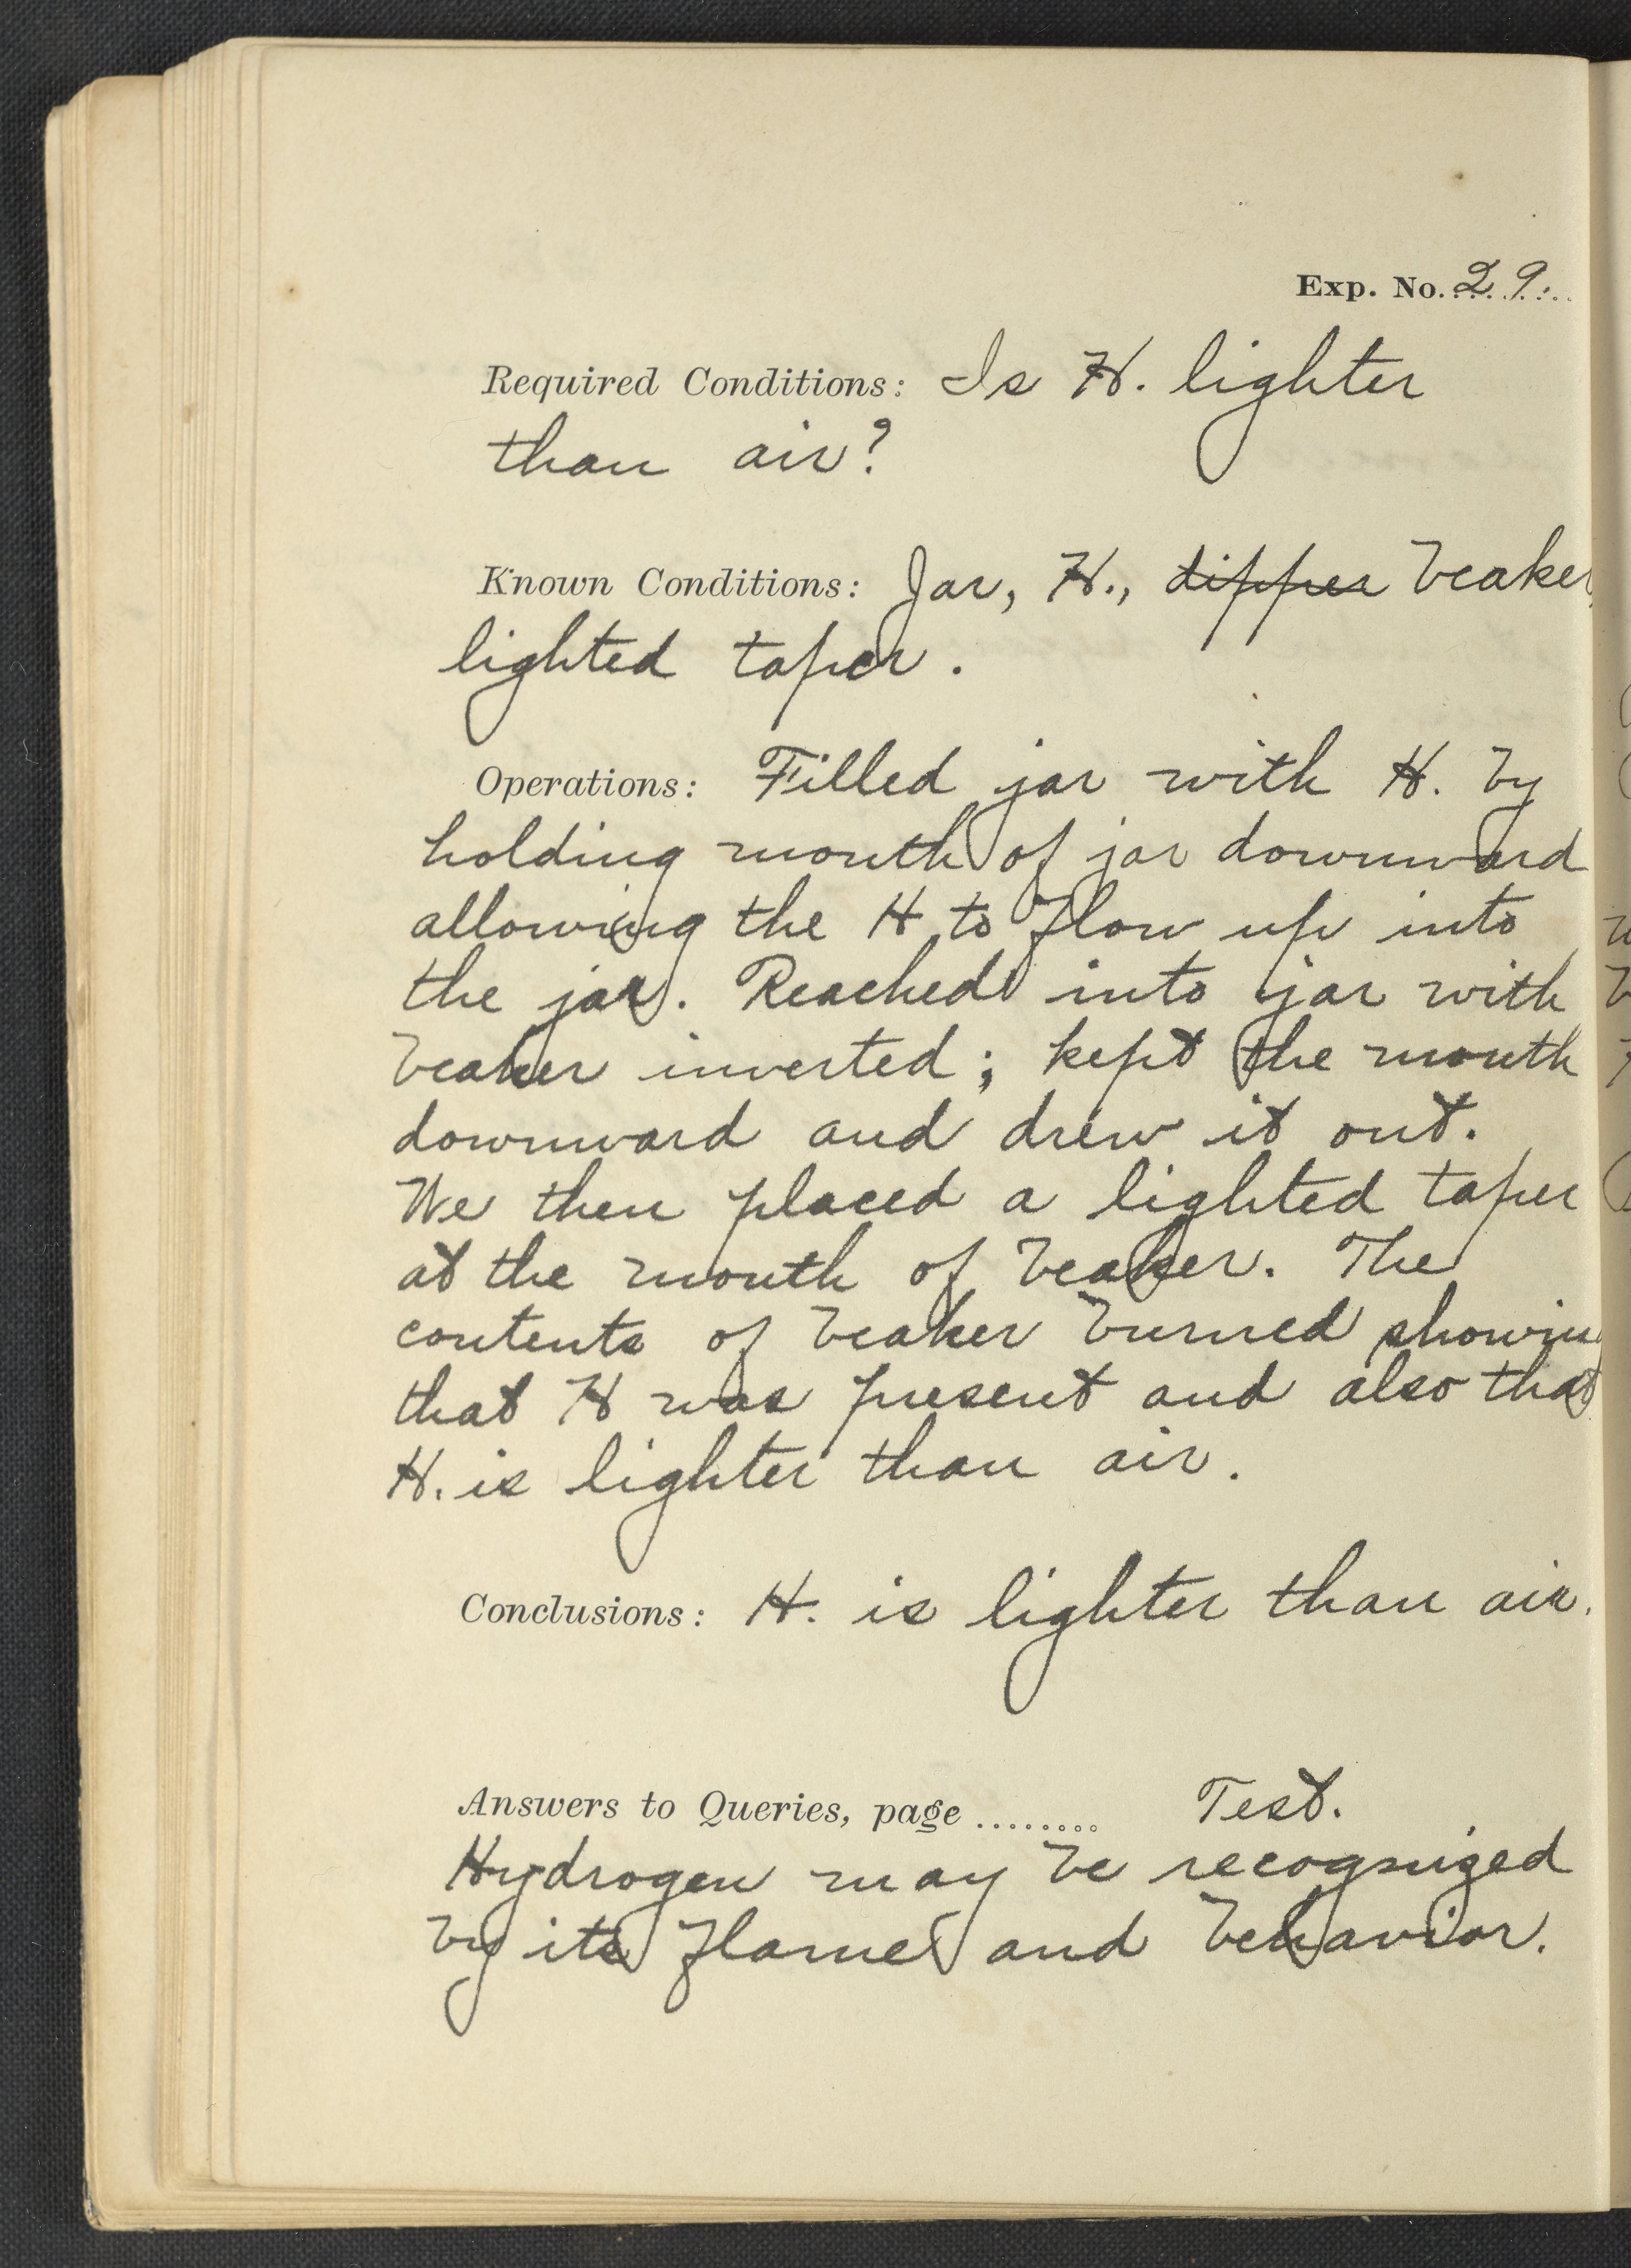 Exp. No. 29.
Required Conditions: Is H. lighter
than air?
Known Conditions: Jar, H., dipper beaker,
lighted taper.
Operations: Filled jar with H. by
holding mouth of jar downward
allowing the H to flow up into
the jar. Reached into jar with
beaker inverted; kept the mouth
downward and drew it out.
We then placed a lighted taper
at the mouth of beaker. The
contents of beaker burned showin
that H was present and also that
H. is lighter than air.
Conclusions: H. is lighter than air.
Answers to Queries, page ........ Test.
Hydrogen may be recognized
by its flame and behavior.